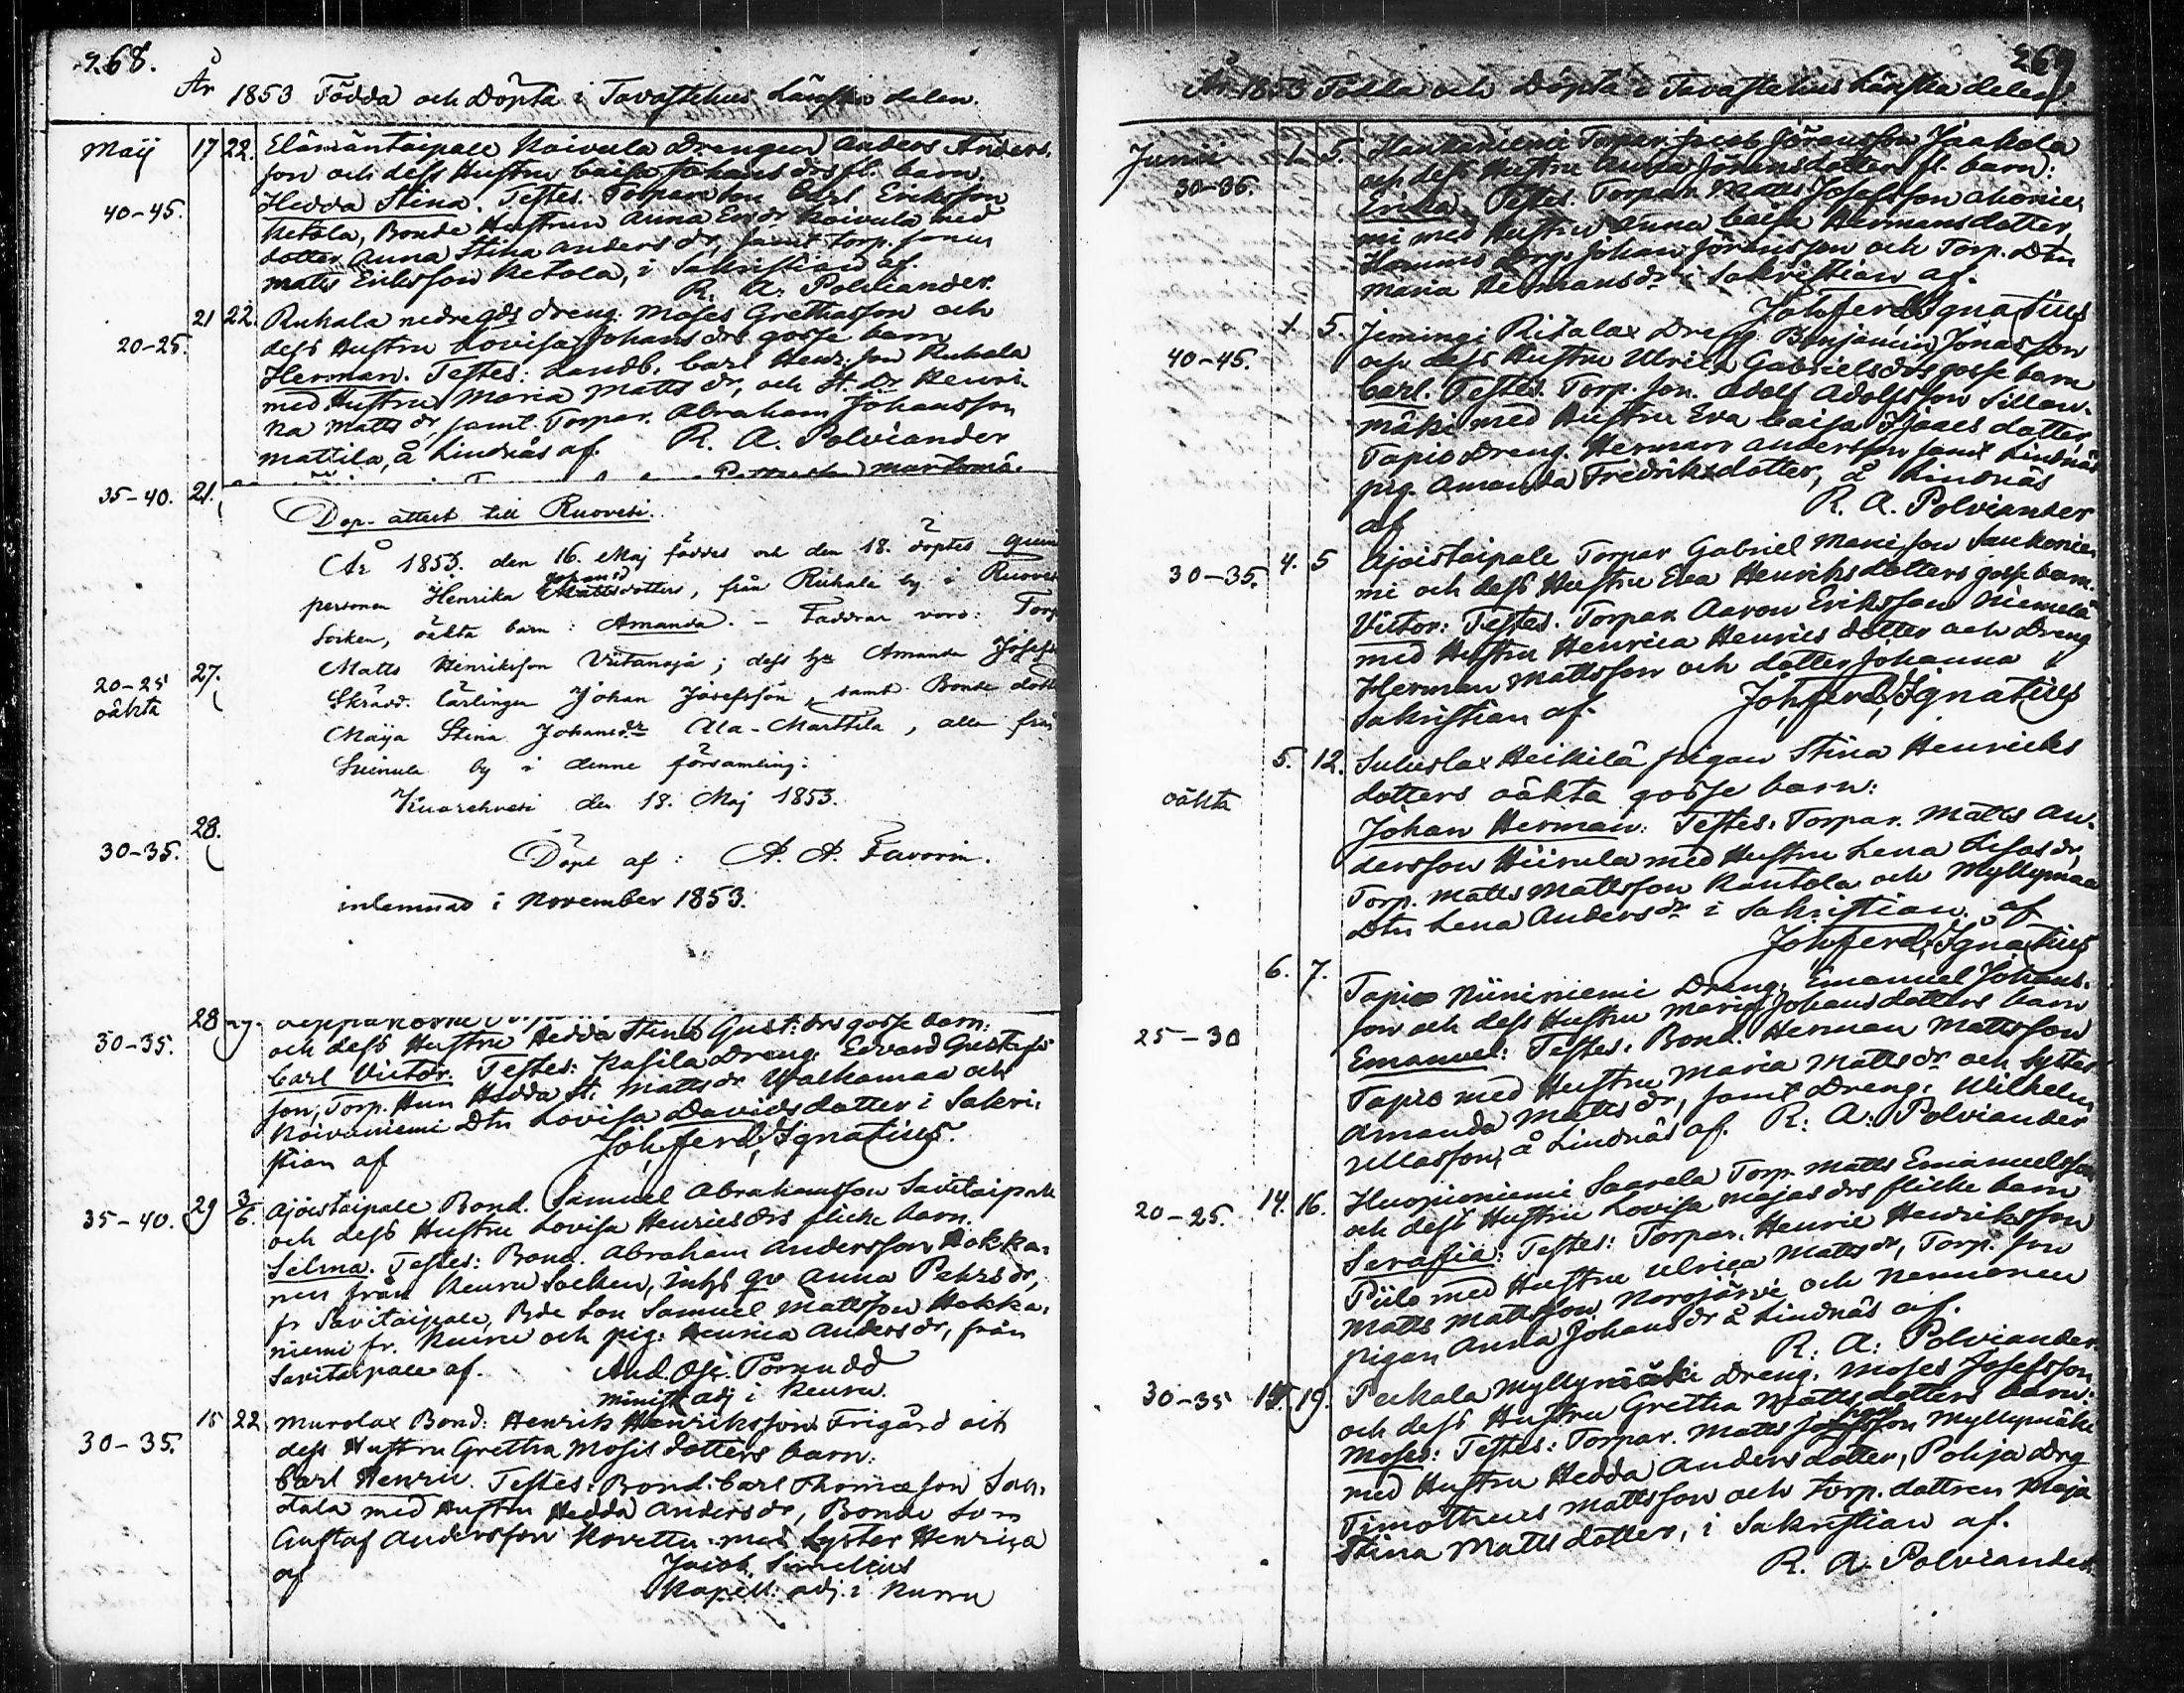 268.
År 1853 Födda och Döpta i Tavastehus Länska delen.
Maij 17 22. Elämäntaipale Koivula Drengen Anders Anders-
40-45. son och dess Hustru Caisa Johans drs fl. barn.
Hedda Stina. Testes. Torpare son Carl Eriksson
Ketola, Bonde Hustrun Anna Eric dr Koivula med
dotter Anna Stina Anders dr, samt torp. sonen
Matts Eriksson Ketola, i Sakristian af.
R. A. Polviander.
21 22. Ruhala nedregds dreng. Moses Grethasson och
20-25. dess Hustru Lovisa Johans drs gosse barn
Herman. Testes: Landb. Carl Henr. son Ruhala
med Hustru Maria Matts dr, och St. Dr Henri-
ka Matts dr, samt Torpar. Abraham Johansson
Mattila, å Lindnäs af. R. A. Polviander
35-40. 21.
Dop-attest till Ruovesi.
År 1853. den 16. Maj föddes och den 18. döptes
personen Henrika Johansd Mattsdotters, från Ruhala by i Ruoves
Socken, oäkta barn: Amanda. - Faddrar voro: Torp
20-25 oäkta 27. Matts Henriksson Viitansja; dess h. Amanda Josefs
Skrädd. lärlingen Johan Josefsson, samt Bonde dott
Maija Stina Johansdr Ala-Marttila, alla från
by i denne församling:
Kuorehvesi den 18. Maj 1853.
30-35. 28.
Döpt af: A. A. Favorin.
inlemnad i November 1853.
28
30-35. och dess Hustru Hedda Stina Gust: drs gosse barn:
Carl Victor. Testes: Pasila Dreng. Edvard Gustafs
son, Torp. Hun Hedda St. Matts dr Walkamaa och
Koivuniemi Dtn Lovisa Davids dotter i Sakri-
stian af Joh. Ferd. Ignatius.
35-40. 29 3/6. Ajoistaipale Bond. Samuel Abrahamsson Savitaipale
och dess Hustru Lovisa Henriks drs flicke barn.
Selma. Testes: Bond. Abraham Andersson Hokka-
nen från Keuru Socken, Inhs qv Anna Pehrs dr,
fr Savitaipale, Bde Son Samuel Mattsson Hokka-
niemi fr. Keuru och pig: Henrica Anders dr, från
Savitaipale af. And. Osc. Törnudd
minist adj i Keuru.
30-35. 15 22 Murolax Bond: Henrik Henriksson Frigård och
dess Hustru Gretha Mosis dotters barn:
Carl Henric. Testes: Bond. Carl Thomasson
med Hustru Hedda Anders dr, Bonde Son
Gustaf Andersson med Syster Henrica
af Jacob Simelius
Kapell: adj. i Kurru
269
År 1853 Födda och Döpta i Tavastehus Länska delen.
Junii 1. 5. Torpar. Jacob Göransson Jaakola
30-35. och dess Hustru Anna Jöransdotters fl. barn:
Erica. Testes. Torparn Matts Josefsson
mi med Hustru Anna Caisa Hermansdotter,
Johan Göransson och Torp. Dtn
Maria Hermansdr i Sakristian af.
Joh. Ferd. Ignatius
1. 5. Jeminge Ritalax Dreng. Benjamin Jonasson
40-45. och dess Hustru Ulrica Gabrielsdrs gosse barn
Carl. Testes. Torp. son. Adolf Adolfsson Sillan-
mäki med Hustru Eva Caisa Isaacs dotter,
Tapio Dreng. Herman Andersson samt Lindnäs
pig. Amanda Fredriksdotter, å Lindnäs
af R. A. Polviander
30-35. 4. 5 Ajoistaipale Torpar Gabriel Saukonie-
mi och dess Hustru Eva Henriksdotters gosse barn.
Victor: Testes. Torparn Aaron Eriksson Niemelä
med Hustru Henrica Henrics dotter och Dreng
Herman Mattsson och dotter Johanna i
Sakristian af. Joh. Ferd. Ignatius
5. 12. Suluslax Heikilä pigan Stina Henricks
oäkta dotters oäkta gosse barn:
Johan Herman. Testes. Torpar. Matts An-
dersson Hiirula med Hustru Lena Lisas dr,
Torp. Matts Mattsson Rantala och Myllymaa
Dtn Lena Anders dr i Sakristian af
Joh. Ferd. Ignatius
6. 7. Tapio Niininiemi Dreng. Emanuel Johans-
25-30 son och dess Hustru Maria Johansdotters barn
Emanuel: Testes. Bond. Herman Mattsson
Tapio med Hustru Maria Matts dr och Syster
Amanda Matts dr, samt Dreng. Wilhelm
Ullasson, å Lindnäs af. R. A. Polviander
20-25. 14. 16. Huopioniemi Saarela Torp. Matts Emanuelsson
och dess Hustru Lovisa Majas drs flicke barn
Serafia: Testes: Torpar. Henric Henriksson
Piilo med Hustru Ulrica Matts dr, Torp. son
Matts Mattsson Norojärvi och Nennonen
pigan Anna Johans dr å Lindnäs af.
R. A. Polviander
30-35 19. Pekala Myllymäki Dreng. Moses Josefsson
och dess Hustru Gretha Mattsdotters barn:
Moses: Testes: Torpar. Matts Myllymäki
med Hustru Hedda Anders dotter, Pohja Drg
Timotheus Mattsson och Torp. dottren Maja
Stina Matts dotter, i Sakristian af.
R. A. Polviander.